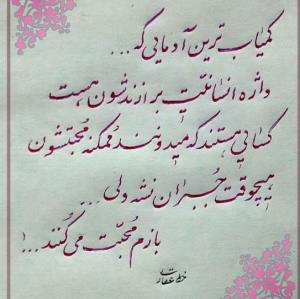 کمیاب ترین آدمایی که ...
واژه انسانیت برازندشون هست
کسایی هستند که میدونند ممکنه محبتشون
هیچوقت جبران نشه ولی ...
بازم محبت می کنند ...!